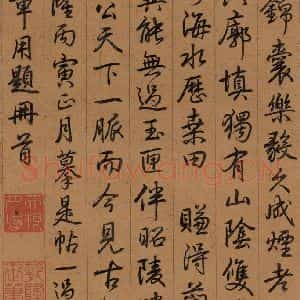 錦囊樂毅久成煙老
廓填獨有山陰雙
海水歷桑田 賺得
能無過玉匣伴昭陵
公天下一脈而今見古
隆丙寅正月摹是帖一過
用題冊首